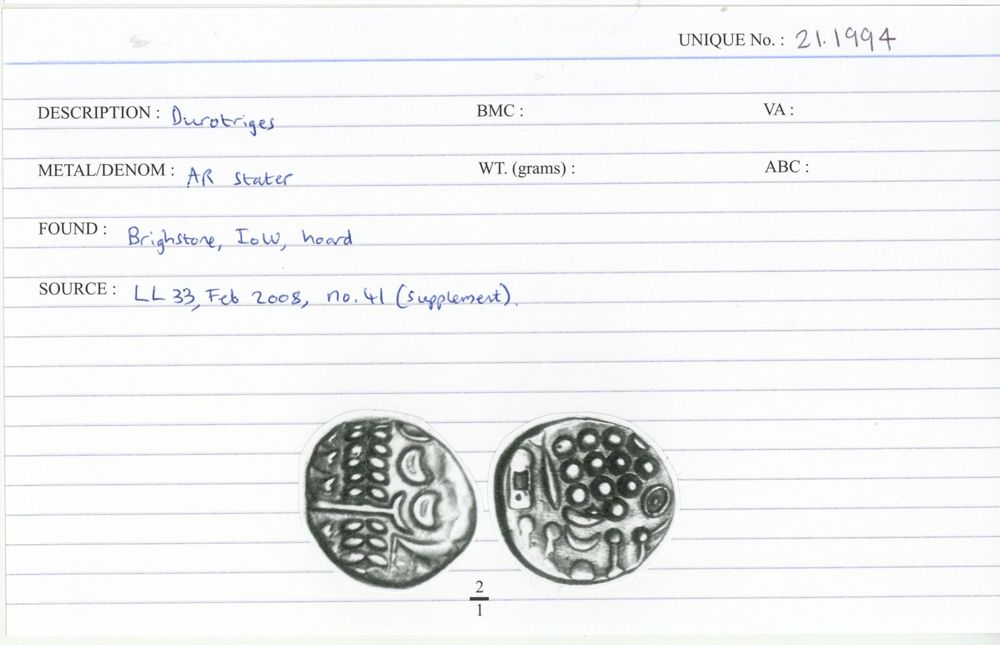 UNIQUE No. : 21.1994
DESCRIPTION : Durotriges BMC : VA :
METAL/DENOM : AR stater WT. (grams) : ABC :
FOUND : Brighstone, IoW, hoard
SOURCE : LL 33, Feb 2008, no. 41 (supplement).
2
1